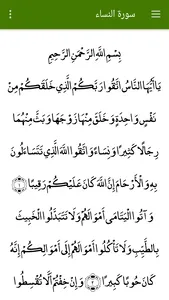 سورة النساء
بِسْمِ اللَّهِ الرَّحْمَنِ الرَّحِيمِ
يَا أَيُّهَا النَّاسُ اتَّقُوا رَبَّكُمُ الَّذِي خَلَقَكُمْ مِنْ
نَفْسٍ وَاحِدَةٍ وَخَلَقَ مِنْهَا زَوْجَهَا وَبَثَّ مِنْهُمَا
رِجَالًا كَثِيرًا وَنِسَاءً وَاتَّقُوا اللَّهَ الَّذِي تَتَسَاءَلُونَ
بِهِ وَالْأَرْحَامَ إِنَّ اللَّهَ كَانَ عَلَيْكُمْ رَقِيبًا ﴿١﴾
وَآتُوا الْيَتَامَى أَمْوَالَهُمْ وَلَا تَتَبَدَّلُوا الْخَبِيثَ
بِالطَّيِّبِ وَلَا تَأْكُلُوا أَمْوَالَهُمْ إِلَى أَمْوَالِكُمْ إِنَّهُ
كَانَ حُوبًا كَبِيرًا ﴿٢﴾ وَإِنْ خِفْتُمْ أَلَّا تُقْسِطُوا